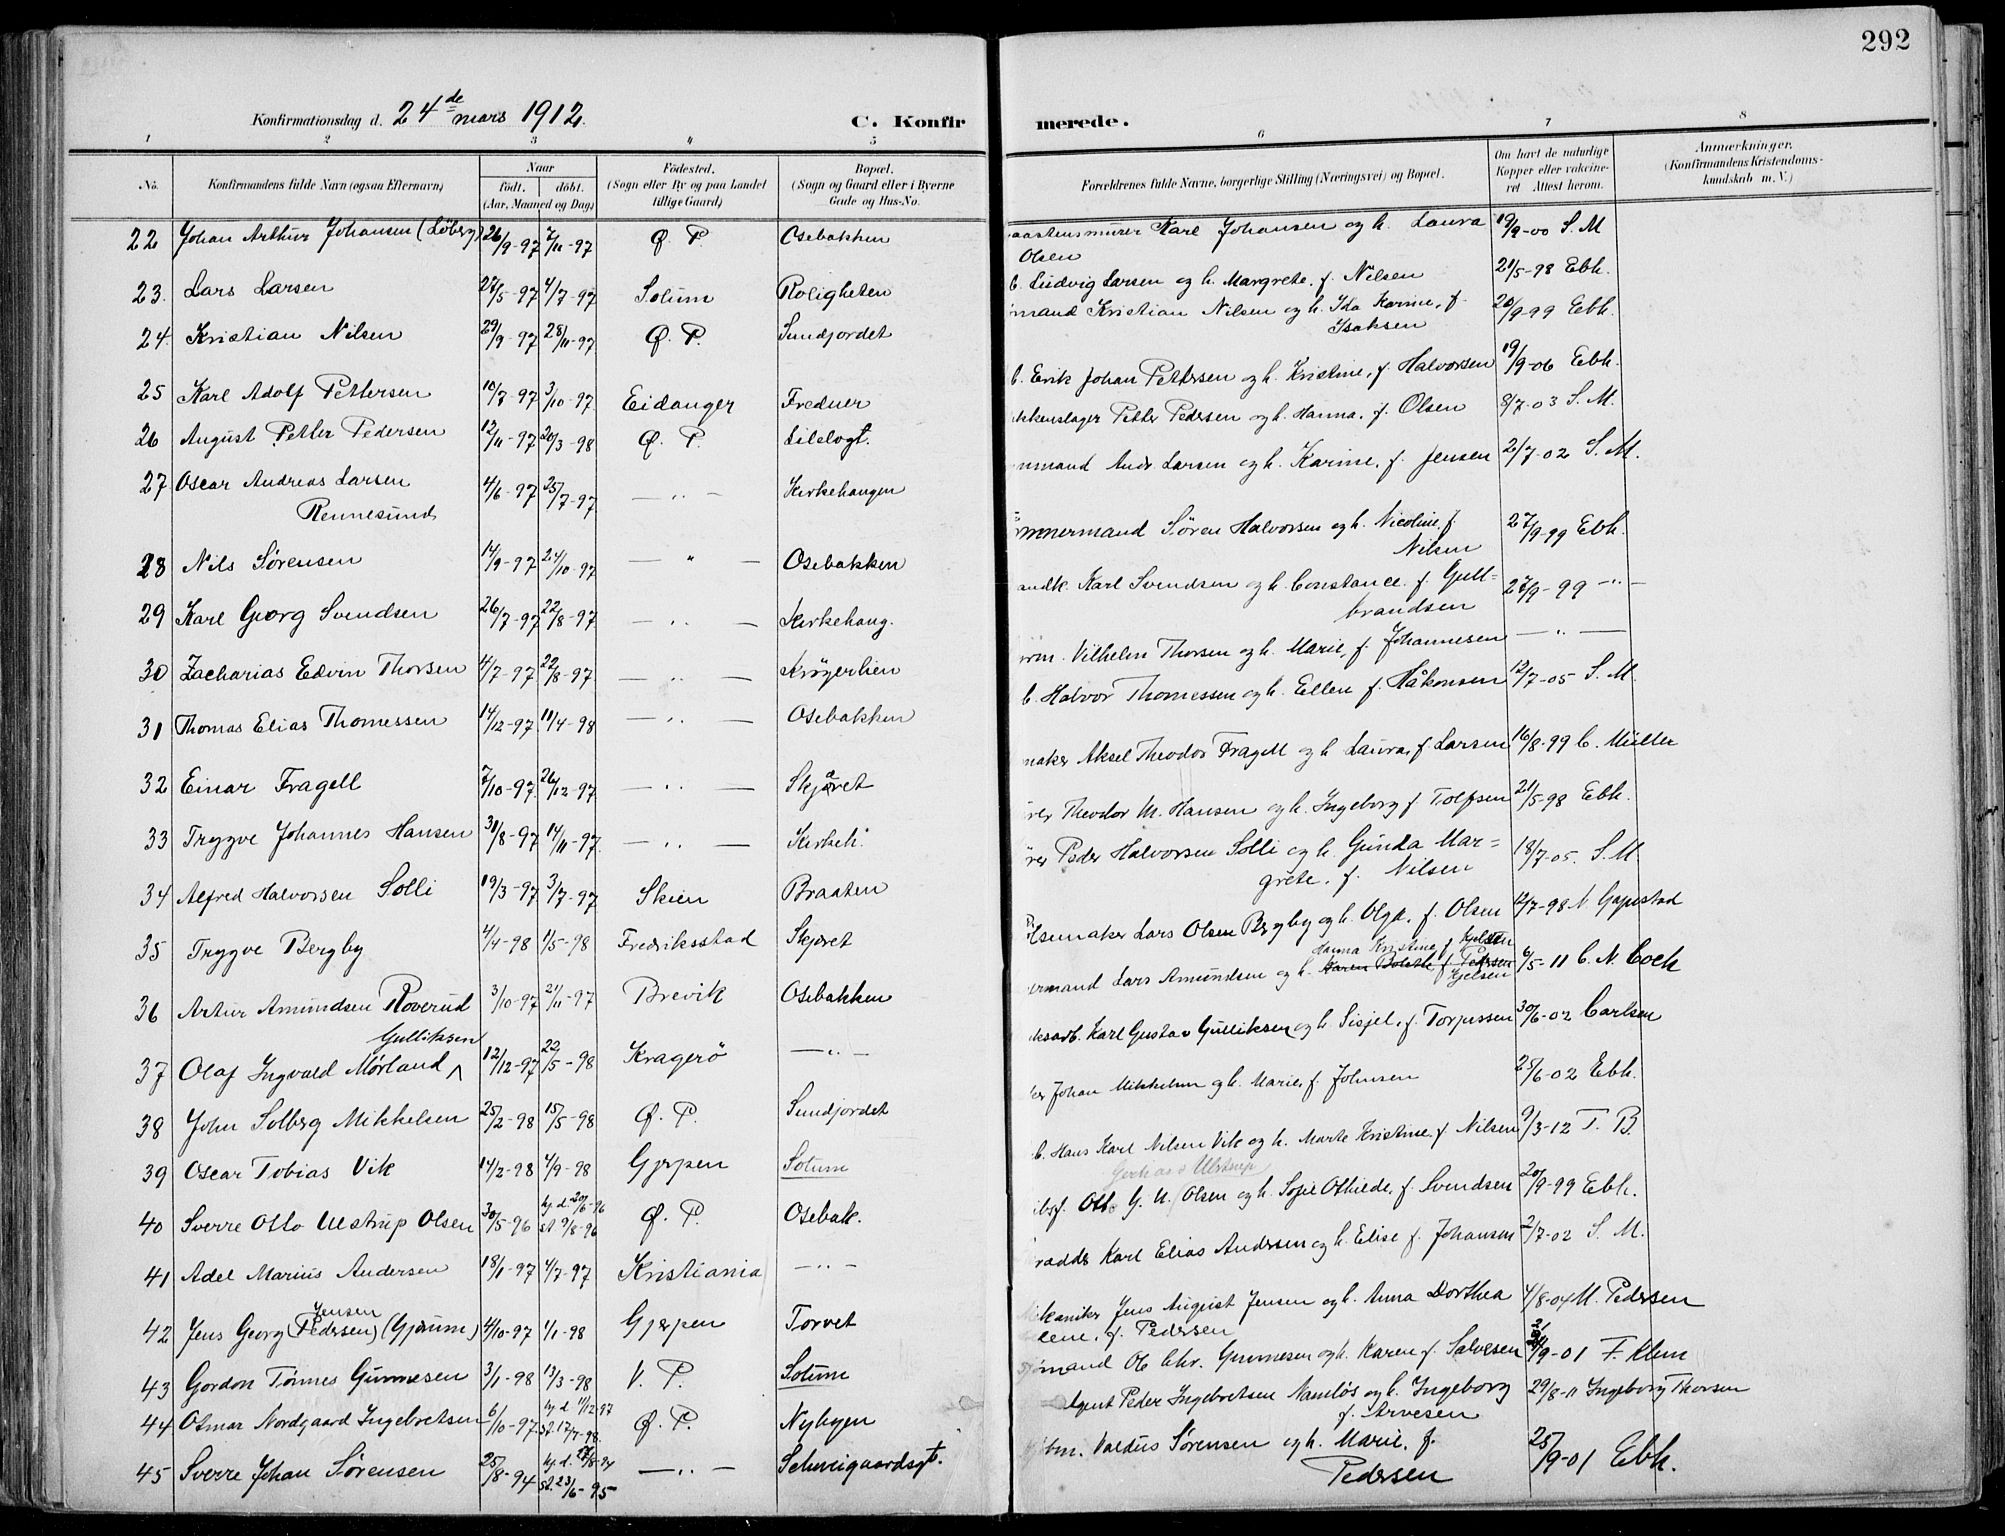 292
Konfirmationsdag d. 24de mars 1912. C. Konfirmerede.
1 2 3 4 5 6 7 8
No. Konfirmandens fulde Navn (ogsaa Efternavn) Naar födt. döbt. (Aar, Maaned og Dag) Födested. (Sogn eller By og paa Landet tillige Gaard) Bopæl. (Sogn og Gaard eller i Byerne Gade og Hus-No. Forældrenes fulde Navne, borgerlige Stilling (Næringsvei) og Bopæl. Om havt de naturlige Kopper eller vakcineret. Attest herom. Anmerkninger. (Konfirmandens Kristendomskundskab m. V.)
22 Johan Arthur Johansen (Løberg) 26/9-97 7/11-97 Ø. P. Osebakken aastensmurer Karl Johansen og h. Laura 19/9-00 S. M
Olsen
23. Lars Larsen /5-97 4/7-97 Solum Roligheten b. Ludvig Larsen og h. Margrete, f. Nilsen 21/5-98 Ebh.
24. Kristian Nilsen 29/9-97 28/11-97 Ø. P. Sundjordet mand Kristian Nilsen og h. Ida Karine, f. 20/9-99 Ebh.
Isaksen
25 Karl Adolf Pettersen 10/7-97 3/10-97 Eidanger Frednes b. Erik Johan Pettersen og h. Kristine, f. Halvorsen 19/9-06 Ebh.
26 August Petter Pedersen 12/11-97 20/3-98 Ø. P. Lilelogt. kkenslager Petter Pedersen og h. Hanna, f. Olsen 8/7-03 S. M.
27 Oscar Andreas Larsen 4/6-97 25/7-97 — " — Kirkehaugen mand Andr. Larsen og h. Karine, f. Jensen 2/7-02 S. M.
Rennesund
28 Nils Sørensen 14/9-97 24/10-97 — " — Osebakken ømmermand Søren Halvorsen og h. Nicoline, f. 27/9-99 Ebh.
Nilsen
29 Karl Georg Svendsen 26/7-97 22/8-97 — " — Kirkehaug. andk. Karl Svendsen og h. Constance f. Gull- 27/9-99 — " —
brandsen
30 Zacharias Edvin Thorsen 4/7-97 22/8-97 — " — Krøyerlien orm. Vilhelm Thorsen og h. Marie, f. Johannesen — " —
31 Thomas Elias Thomessen 14/12-97 11/4-98 — " — Osebakken b. Halvor Thomessen og h. Ellen f. Håkonsen 12/7-05 S. M
32 Einar Fragell 7/10-97 26/12-97 — " — Skjæret maker Aksel Theodor Fragell og h Laura, f. Larsen 16/8-99 C. Müller
33 Trygve Johannes Hansen 31/8-97 14/11-97 — " — Kirkeh. rer Theodor M. Hansen og h. Ingeborg f Tolfsen 21/5-98 Ebh.
34 Alfred Halvorsen Solli 19/3-97 3/7-97 Skien Braaten rer Peder Halvorsen Solli og h. Gunda Mar- 18/7-05. S. M.
grete, f. Nilsen
35 Trygve Bergby 4/4-98 /5-98 Fredriksstad Skjæret lsemaker Lars Olsen Bergby og h. Olga, f. Olsen 12/7-98 N. Gapestad
36 Artur Amundsen Roverud 3/10-97 21/11-97 Brevik Osebakken ermand Lars Amundsen og h. Hanna Kristine f Kjelsen Karen Bolette f Pedersen Kjelsen 6/5-11 C. N. Cock
37 Olaf Ingvald Mørland Gulliksen 12/12-97 22/5-98 Kragerö — " — ksarb. Karl Gustav Gulliksen og h. Sisjel, f. Torjussen 30/6-02 Carlsen
38 John Solberg Mikkelsen 25/2-98 15/5-98 Ø. P. Sundjordet er Johan Mikkelsen og h. Marie, f. Johnsen 25/6-02 Ebh.
39 Oscar Tobias Vik 14/2-98 4/9-98 Gjerpen Solum b. Hans Karl Nilsen Vik og h. Marte Kristine f Nilsen 9/3-12 T. B.
Ulstrup
40 Sverre Otto Ulstrup Olsen 30/5-96 hj. d. 20/6-96 st. 9/8-96 Ø. P. Osebak. ibsf. Otto G. U. Olsen og h. Sofie Othilde, f. Svendsen 20/9-99 Ebh.
41 Adel Marius Andersen 18/1-97 4/7-97 Kristiania — " — radds Karl Elias Andersen og h. Elise f. Johansen 2/7-02 S. M.
42 Jens Georg (Pedersen) Jensen (Gjerum) 4/10-97 1/1-98 Gjerpen Torvet Mekaniker Jens August Jensen og h. Anna Dorthea 4/8-04 M. Pedersen
lene, f. Pedersen
43 Gordon Tønnes Gunnesen 3/1-98 13/3-98 V. P. Solum Sjømand Ole Chr. Gunnesen og h. Karen f. Salvesen /9-01 F. Klem
44 Otmar Nordgaard Ingebretsen 6/10-97 hj. d. /12-97 st. 17/7-98. Ø. P. Nybyen Agent Peder Ingebretsen Namløs og h. Ingeborg 29/8-11 Ingeborg Thorsen
f. Arvesen
45 Sverre Johan Sørensen 25/8-94 hj. d. /8-94 st. 23/6-95 — " — Schweigaardsgt. bm. Valdus Sørensen og h. Marie, f. 25/9-01 Ebh.
Pedersen